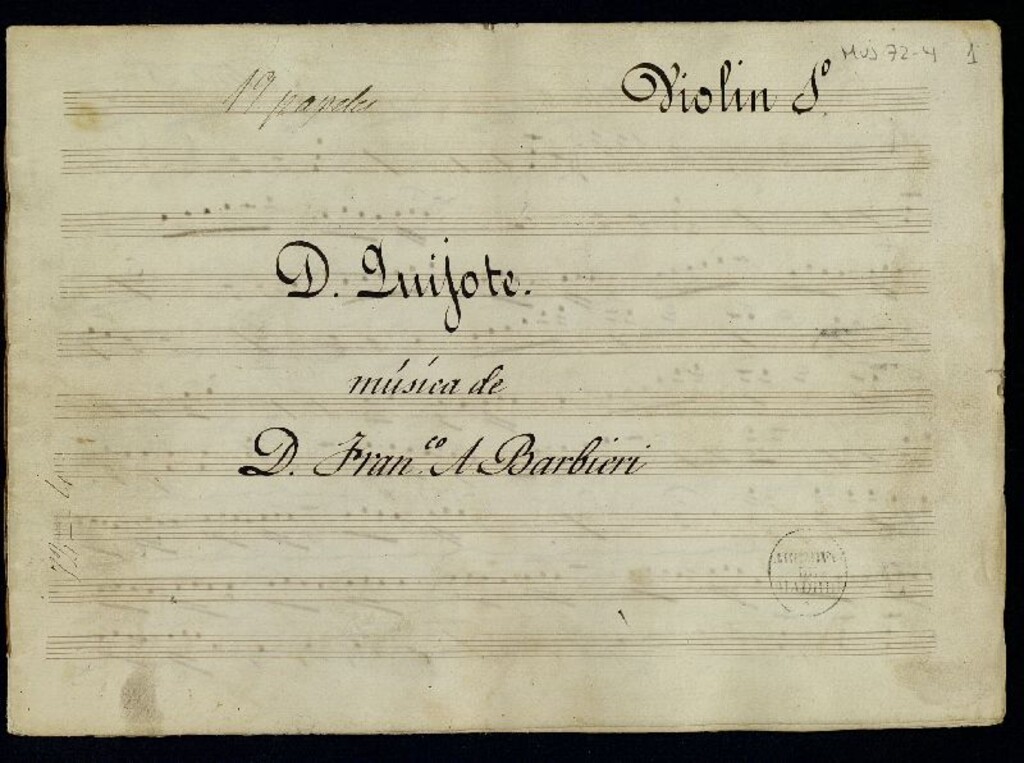 MUS 72-4 1
19 papeles
Violin 1º
D. Quijote.
música de
D. Fran.co A Barbieri
72-4
MADRID